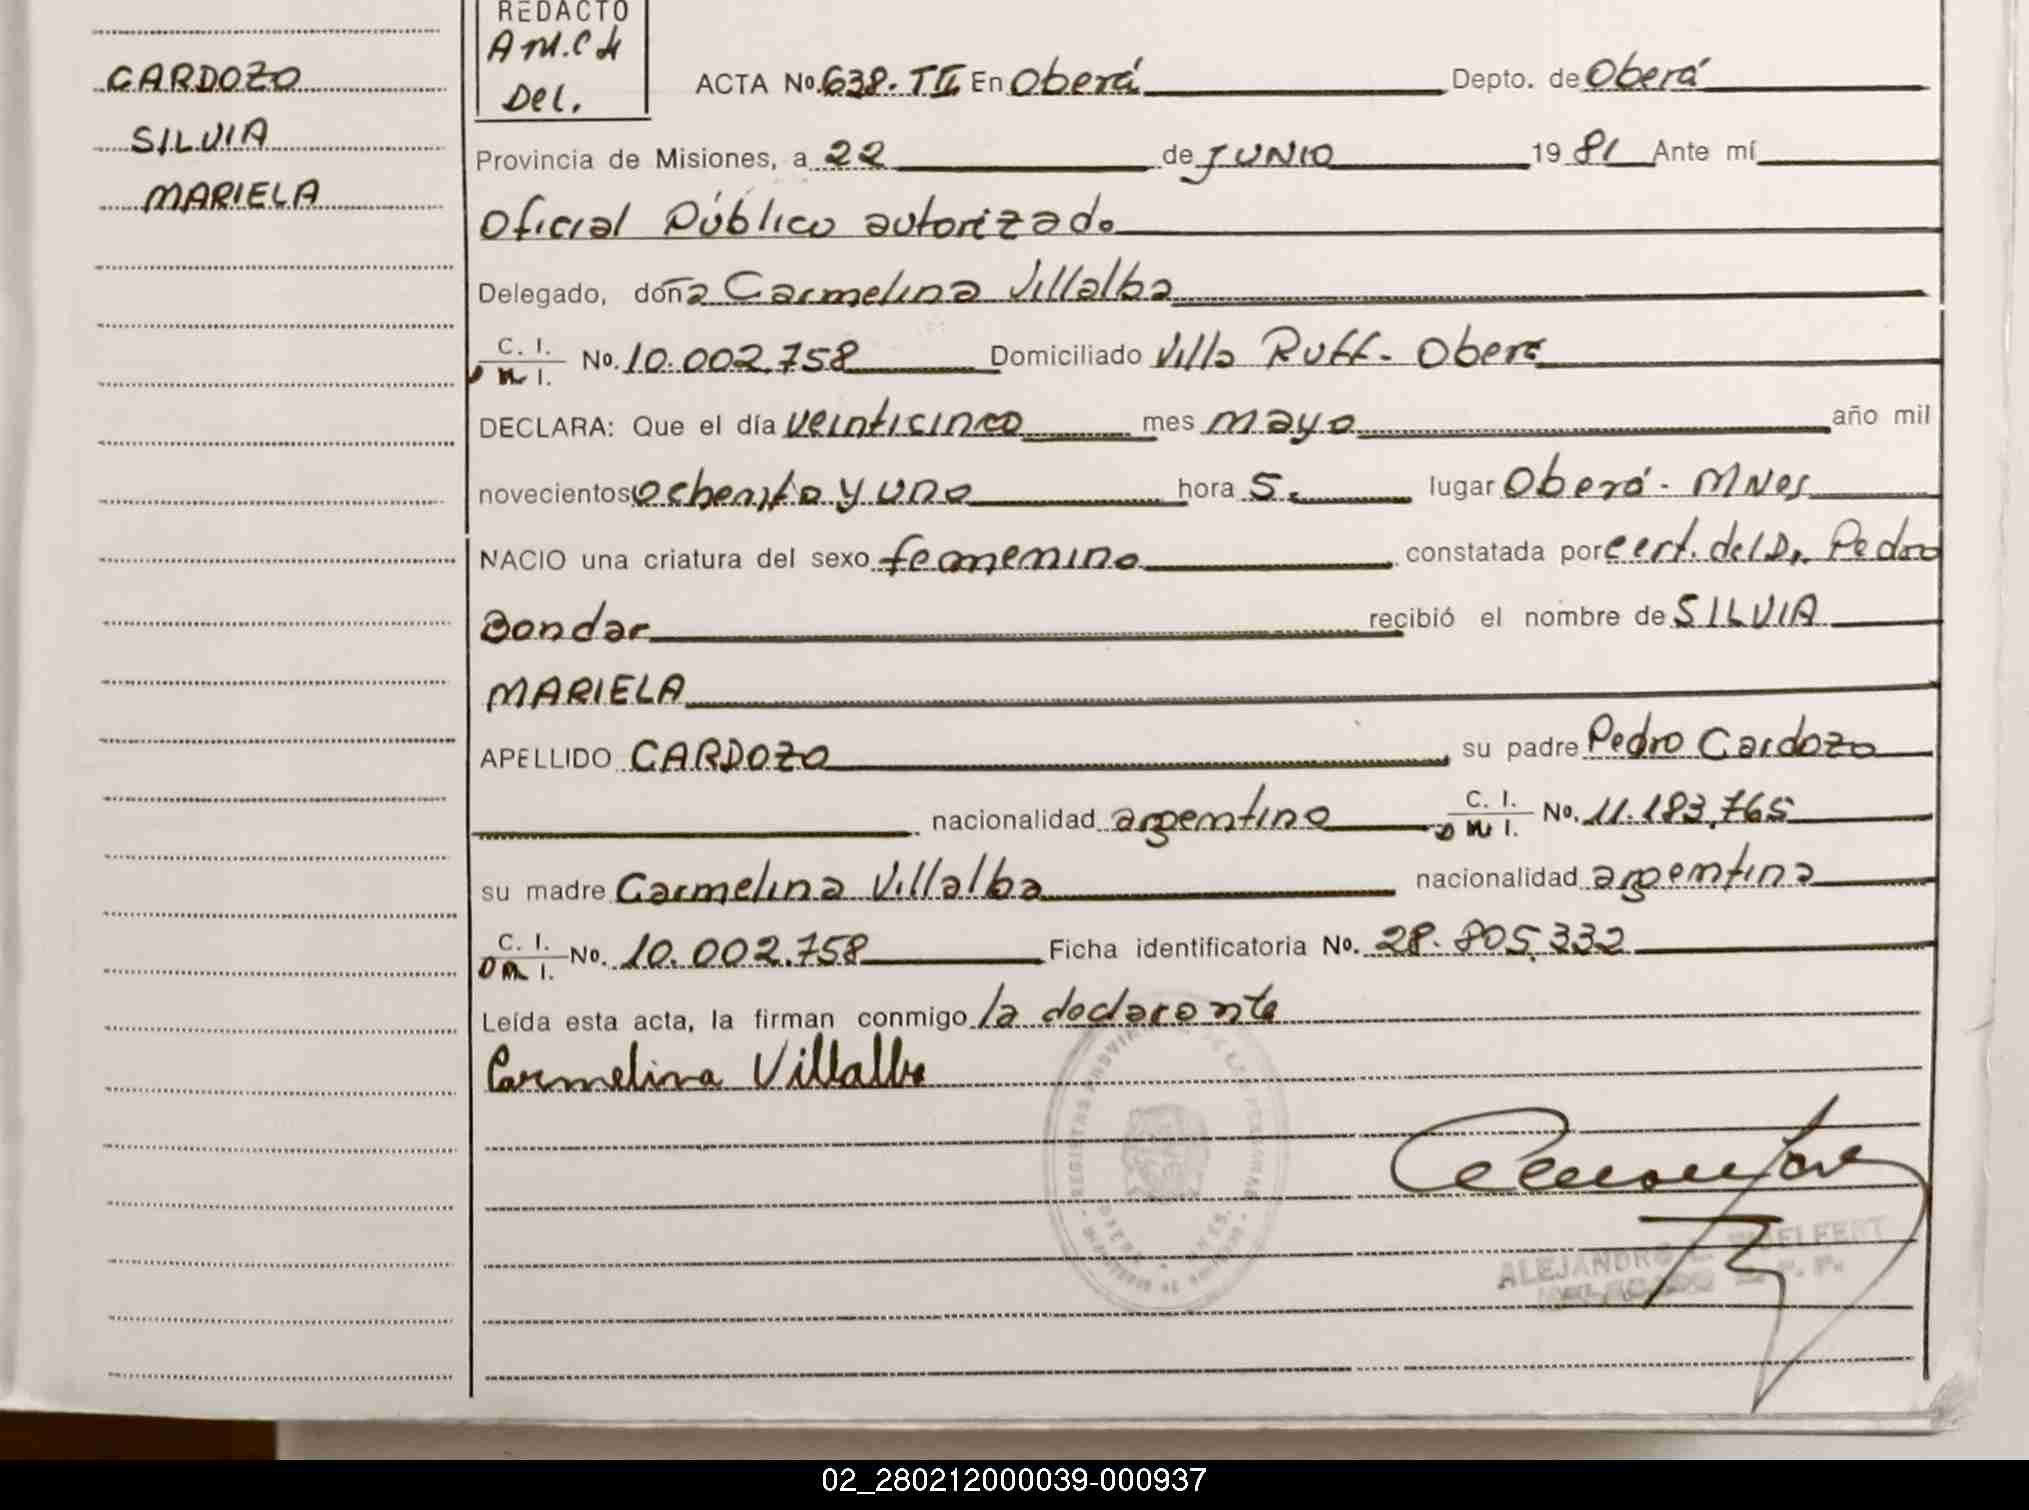 REDACTO
A M.C H
Del.
CARDOZO
SILVIA
MARIELA
ACTA No. 638. TII En Oberá Depto. de Oberá
Provincia de Misiones, a 22 de JUNIO 19 81 Ante mí
Oficial Público autorizado
Delegado, doña Carmelina Villalba
C. I.
D M I. No. 10.002.758 Domiciliado Villa Ruff - Obera
DECLARA: Que el día veinticinco mes mayo año mil
novecientos ochenta y uno hora 5. lugar Oberá - MNes
NACIO una criatura del sexo femenino constatada por cert. del Dr. Pedro
Bondar recibió el nombre de SILVIA
MARIELA
APELLIDO CARDOZO su padre Pedro Cardozo
nacionalidad argentino C. I. D M I. No. 11.183.765
su madre Carmelina Villalba nacionalidad argentina
C. I. D M I. No. 10.002.758 Ficha identificatoria No. 28.805.332
Leída esta acta, la firman conmigo la declarante
Carmelina Villalba
ALEJANDRO
02_280212000039-000937